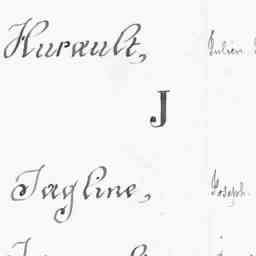 Hurault, Julien
J
Jagline, Joseph.